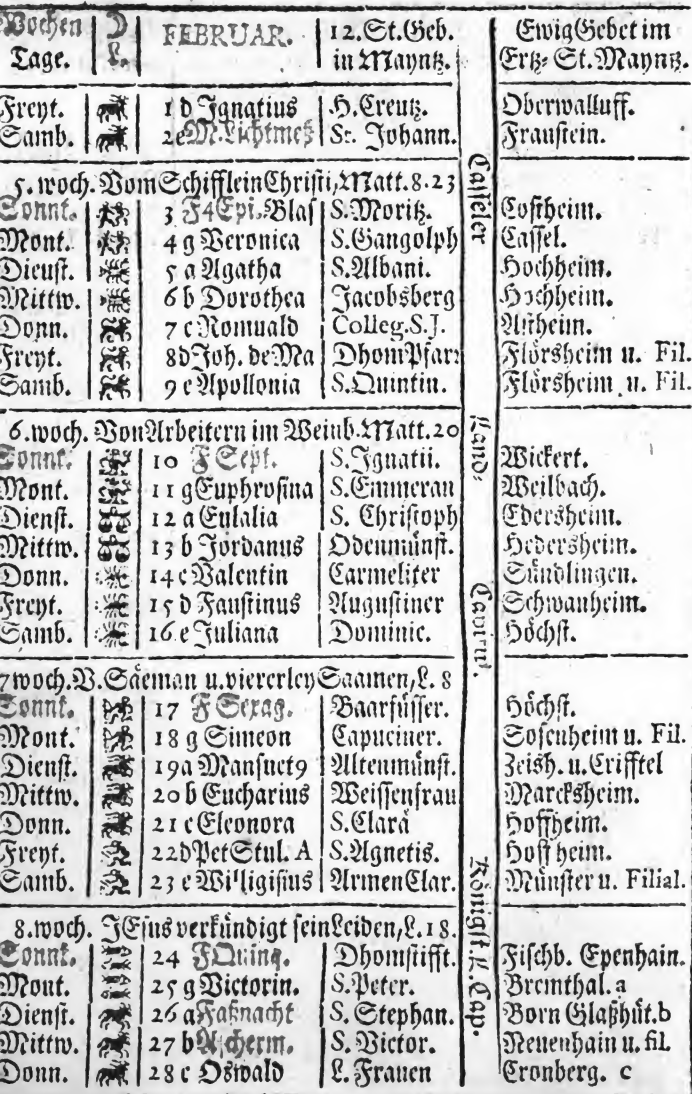 Wochen Tage. D L. FEBRUAR. 12. St. Geb. in Mayntz. Ewig Gebet im Ertz-St. Mayntz.
Freyt. 1 d Ignatius H. Creutz. Oberwalluff.
Samb. 2 e M. Lichtmeß St. Johann. Fraustein.
5. woch. Vom Schifflein Christi, Matt. 8. 23
Sonnt. 3 F 4 Epi. Blas S. Moritz. Costheim.
Mont. 4 g Veronica S. Gangolph Cassel.
Dienst. 5 a Agatha S. Albani. Hochheim.
Mittw. 6 b Dorothea Jacobsberg Hochheim.
Donn. 7 c Romuald Colleg. S. J. Astheim.
Freyt. 8 d Joh. de Ma Dhom Pfarr Flörsheim u. Fil.
Samb. 9 e Apollonia S. Quintin. Flörsheim u. Fil.
6. woch. Von Arbeitern im Weinb. Matt. 20
Sonnt. 10 F Sept. S. Ignatii. Wickert.
Mont. 11 g Euphrosina S. Emmeran Weilbach.
Dienst. 12 a Eulalia S. Christoph Edersheim.
Mittw. 13 b Jordanus Odenmünst. Hedersheim.
Donn. 14 c Valentin Carmeliter Sündlingen.
Freyt. 15 d Faustinus Augustiner Schwanheim.
Samb. 16 e Juliana Dominic. Höchst.
7 woch. V. Säeman u. viererley Saamen, L. 8
Sonnt. 17 F Sexag. Baarfüsser. Höchst.
Mont. 18 g Simeon Capuciner. Sosenheim u. Fil.
Dienst. 19 a Mansuet9 Altenmünst. Zeish. u. Crifftel
Mittw. 20 b Eucharius Weissenfrau Marcksheim.
Donn. 21 c Eleonora S. Clara Hoffheim.
Freyt. 22 d Pet Stul. A S. Agnetis. Hoffheim.
Samb. 23 e Willigisius Armen Clar. Münster u. Filial.
8. woch. JEsus verkündigt sein Leiden, L. 18.
Sonnt. 24 F Quinq. Dhomstifft. Fischb. Epenhain.
Mont. 25 g Victorin. S. Peter. Bremthal. a
Dienst. 26 a Faßnacht S. Stephan. Born Glaßhüt. b
Mittw. 27 b Ascherm. S. Victor. Neuenhain u. fil.
Donn. 28 c Oswald L. Frauen Cronberg. c
Casseler Land-Capitul. Königst. L. Cap.